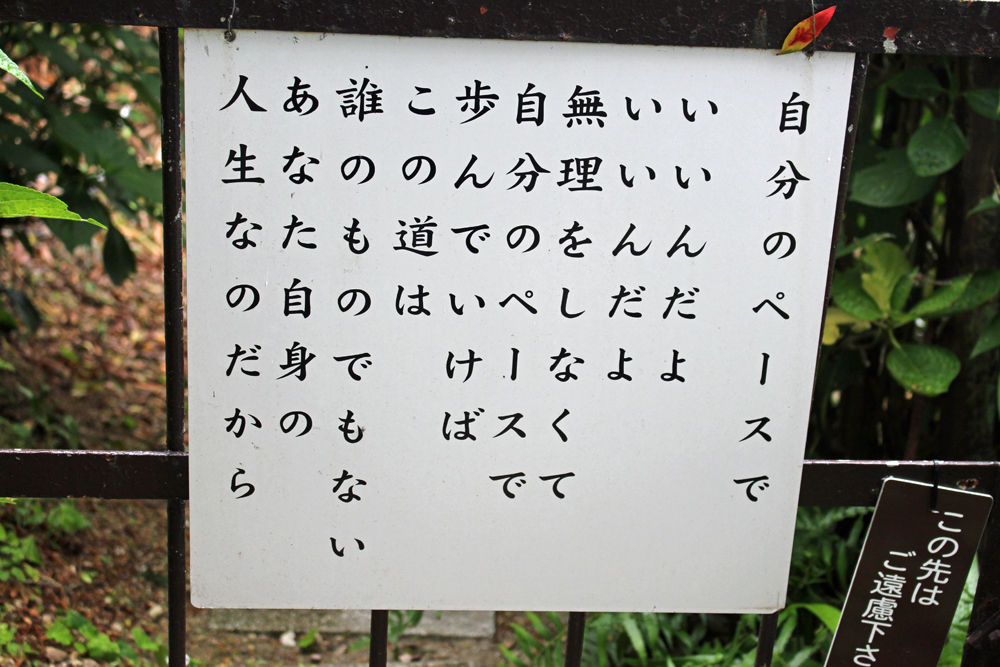 自分のペースで
いいんだよ
いいんだよ
無理をしなくて
自分のペースで
歩んでいけば
この道は
誰のものでもない
あなた自身の
人生なのだから
この先は
ご遠慮下さ